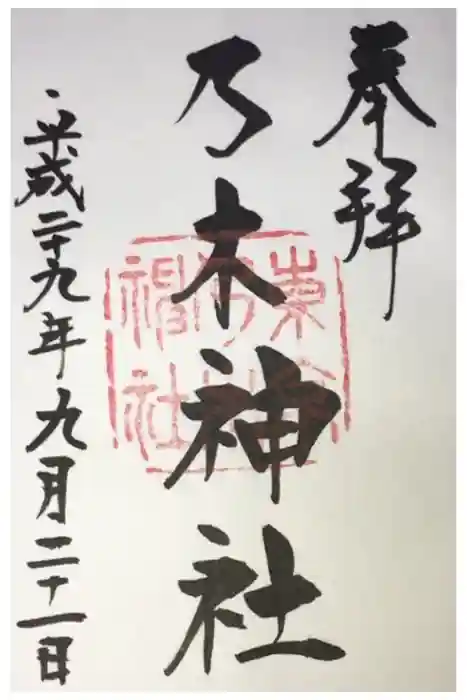 奉拝
乃木神社
平成二十九年九月二十一日